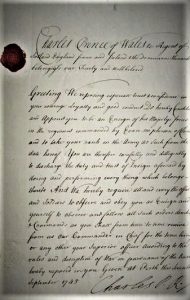 Charles Prince of Wales &c Regent of
Scotland England France and Ireland & the dominions thereunto
belonging To our Trusty and Well beloved
Greeting We reposing especial trust and confidence in
your courage loyalty and good conduct Do hereby constitute
and Appoint you to be an Ensign of His Majestys forces
in the regiment commanded by
and to take your rank in the Army as such from the date
hereof You are therefore carefully and diligently to
discharge the duty and trust of Ensign aforesaid by
doing and performing every thing which belongs
thereto And we hereby require all and every the officers
and Soldiers to observe and obey you as Ensign and
yourself to observe and follow all such orders directions
& Commands as you shall from time to time receive
from us our Commander in Chief for the time being
or any other your Superior officer According to the
rules and discipline of War in pursuance of the trust
hereby reposed in you Given at Perth
September 1745
Charles P R